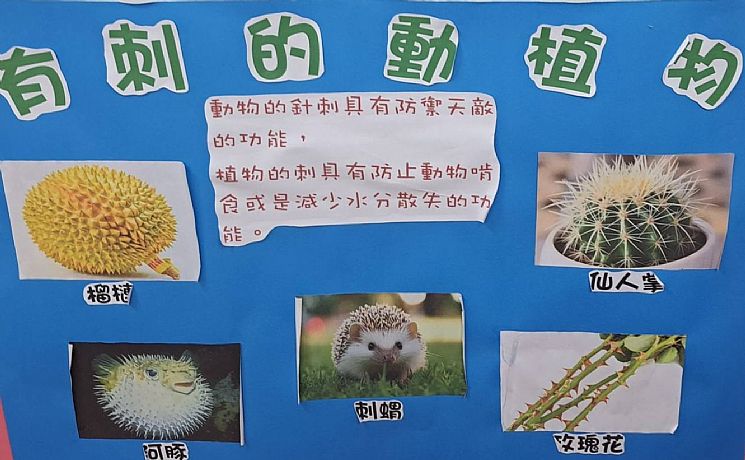 有刺的動植物
動物的針刺具有防禦天敵
的功能，
植物的刺具有防止動物啃
食或是減少水分散失的功
能。
榴槤
仙人掌
刺蝟
河豚
玫瑰花